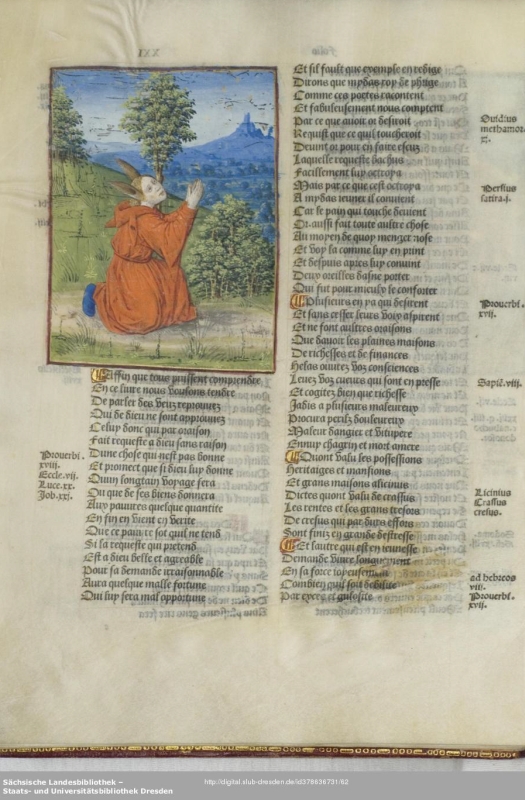 XXI
Affin que tous puissent comprendre
En ce livre nous voulons tendre
De parler des veuz reprouvez
Qui de dieu ne sont approuvez
Celuy donc qui par oraison
Fait requeste a dieu sans raison
Dune chose qui nest pas bonne
Et promect que si dieu luy donne
Quun longtain voyage fera
Ou que de ses biens donnera
Aux pauvres quelque quantite
En fin en vient en verite
Que ce pauvre sot quil ne tend
Si la requeste qui pretend
Est a dieu belle et agreable
Pour sa demande irraisonnable
Aura quelque malle fortune
Qui luy sera mal opportune
Prouerbi.
xviij.
Eccle. vij.
Luce. xx.
Job. xxj.
Et sil fault que exemple en redige
Dirons que mydas roy de phrige
Comme ces poetes racontent
Et fabuleusement nous comptent
Par ce que avoir or desiroit
Requist que ce quil toucheroit
Devint or pour en faire
Laquelle requeste bachus
Facillement luy octroya
Mais par ce que cest octroya
A mydas ieuner il convient
Car le pain qui touche devient
Or aussi fait toute aultre chose
Au moyen de quoy menger nose
Et voy la comme luy en print
Et despuis apres luy convint
Deux oreilles dasne porter
Qui fut pour mieulx le conforter
Plusieurs en ya qui desirent
Et sans cesser leurs voix aspirent
Et ne font aultres oraisons
Que davoir les plaines maisons
De richesses et de finances
Helas ouurez voz consciences
Levez voz cueurs qui sont en presse
Et cogitez bien que richesse
Jadis a plusieurs maleureux
Procura perilz douleureux
Maleur dangier et vitupere
Ennuy chagrin et mort amere
Quont valu les possessions
Heritaiges et mansions
Et grans maisons
Dictes quont valu de crassus
Les rentes et les grans tresors
De cresus qui par durs effors
Sont finiz en grande destresse
Et lautre qui est en ieunesse
Demande vivre longuement
En sa force ioyeusement
Combien quil soit debilite
Par exces et gulosite
Ouidius
methamor.
xj.
Persius
satira.j.
Prouerbi.
xvij.
Sapie. viij.
Licinius
Crassus
cresus.
ad hebreos
viij.
Prouerbi.
xvij.
Sächsische Landesbibliothek –
Staats- und Universitätsbibliothek Dresden
http://digital.slub-dresden.de/id376636731/62